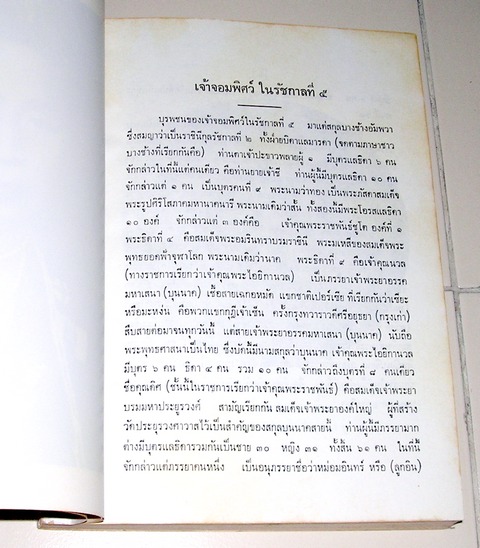 เจ้าจอมพิศว์ ในรัชกาลที่ ๕
บุรพชนของเจ้าจอมพิศว์ในรัชกาลที่ ๕ มาแต่สกุลบางช้างอัมพวา
ซึ่งสมญาว่าเป็นราชินีกุลรัชกาลที่ ๒ ทั้งฝ่ายบิดาแลมารดา (จดตามภาษาชาว
บางช้างที่เรียกกันคือ) ท่านตาเจ้าปะขาวพลายผู้ ๑ มีบุตรแลธิดา ๖ คน
จักกล่าวในที่นี้แต่คนเดียว คือท่านยายเจ้าชี ท่านผู้นี้มีบุตรแลธิดา ๑๐ คน
จักกล่าวแต่ ๑ คน เป็นบุตรคนที่ ๙ พระนามว่าทอง เป็นพระภัสดาสมเด็จ
พระรูปศิริโสภาคมหานาคนารี พระนามเดิมว่าสั้น ทั้งสองนี้มีพระโอรสแลธิดา
๑๐ องค์ จักกล่าวแต่ ๓ องค์คือ เจ้าคุณพระราชพันธุ์ชูโต องค์ที่ ๑
พระธิดาที่ ๔ คือสมเด็จพระอมรินทราบรมราชินี พระมเหสีของสมเด็จพระ
พุทธยอดฟ้าจุฬาโลก พระนามเดิมว่านาค พระธิดาที่ ๙ คือเจ้าคุณนวล
(ทางราชการเรียกว่าเจ้าคุณพระไอยิกานวล) เป็นภรรยาเจ้าพระยาอรรค
มหาเสนา (บุนนาค) เชื้อสายเฉกอหมัด แขกชาติเปอร์เซีย ที่เรียกกันว่าเซียะ
หรือมะหง่น คือพวกแขกกุฎีเจ้าเซ็น ครั้งกรุงทวาราวดีศรีอยุธยา (กรุงเก่า)
สืบสายต่อมาจนทุกวันนี้ แต่สายเจ้าพระยาอรรคมหาเสนา (บุนนาค) นับถือ
พระพุทธศาสนาเป็นไทย ซึ่งบัดนี้มีนามสกุลว่าบุนนาค เจ้าคุณพระไอยิกานวล
มีบุตร ๖ คน ธิดา ๔ คน รวม ๑๐ คน จักกล่าวถึงบุตรที่ ๘ คนเดียว
ชื่อคุณดิศ (ชั้นนี้ในราชการเรียกว่าเจ้าคุณพระราชพันธุ์) คือสมเด็จเจ้าพระยา
บรมมหาประยุรวงศ์ สามัญเรียกกัน สมเด็จเจ้าพระยาองค์ใหญ่ ผู้ที่สร้าง
วัดประยุรวงศาวาสไว้เป็นสำคัญของสกุลบุนนาคสายนี้ ท่านผู้นี้มีภรรยามาก
ต่างมีบุตรแลธิดารวมกันเป็นชาย ๓๐ หญิง ๓๑ ทั้งสิ้น ๖๑ คน ในที่นี้
จักกล่าวแต่ภรรยาคนหนึ่ง เป็นอนุภรรยาชื่อว่าหม่อมอินทร์ หรือ (ลูกอิน)